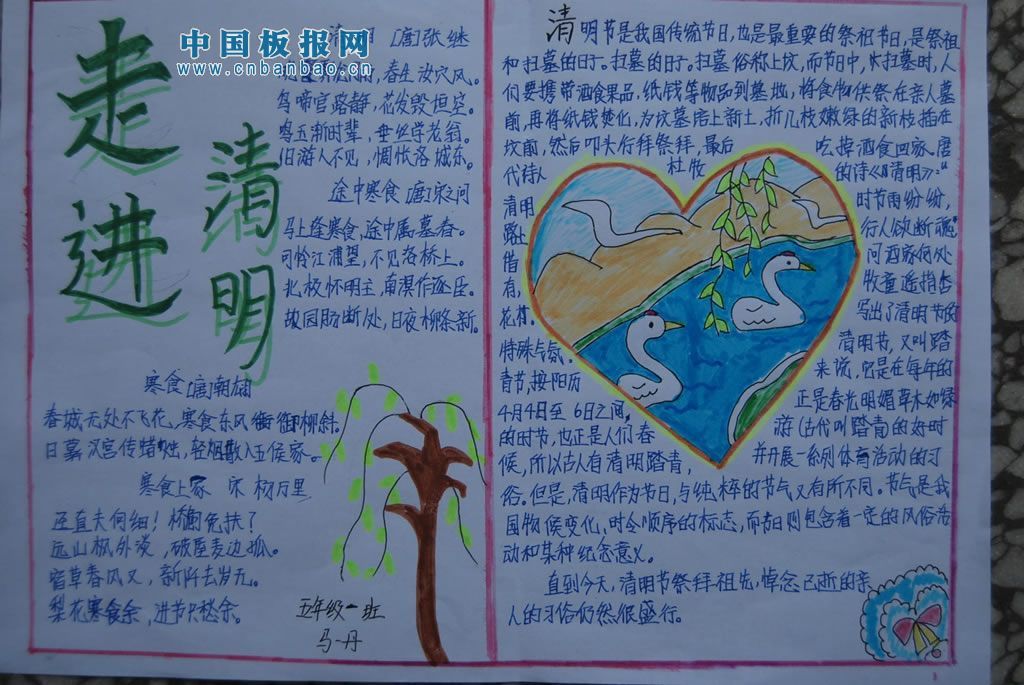 中国板报网
www.cnbanbao.cn
走进
清明
[唐]张继
春生汝穴风。
鸟啼官路静，花发毁垣空。
鸣玉渐时辈，垂丝学老翁。
旧游人不见，惆怅洛城东。
途中寒食 [唐]宋之问
马上逢寒食，途中属暮春。
可怜江浦望，不见洛桥上。
北极怀明主，南溟作逐臣。
故园肠断处，日夜柳条新。
寒食 [唐]
春城无处不飞花，寒食东风御柳斜。
日暮汉宫传蜡烛，轻烟散入五侯家。
寒食上冢 宋 杨万里
远山枫外淡，破屋麦边孤。
宿草春风又，新阡去岁无。
梨花寒食余，进节只愁余。
五年级一班
马丹
清明节是我国传统节日，也是最重要的祭祖节日，是祭祖
和扫墓的日子。扫墓的日子。扫墓俗称上坟，而节日中，扫墓时，人
们要携带酒食果品，纸钱等物品到墓地，将食物供祭在亲人墓
前，再将纸钱焚化，为坟墓培上新土，折几枝嫩绿的新枝插在
坟前，然后叩头行拜祭拜，最后 吃掉酒食回家。唐
代诗人 杜牧 的诗《《清明》："
清明 时节雨纷纷，
路上 行人欲断魂。
借 问酒家何处
有， 牧童遥指杏
花村。 写出了清明节的
特殊气氛。 清明节，又叫踏
青节，按阳历 来说，它是在每年的
4月4日至6日之间， 正是春光明媚草木如绿
的时节，也正是人们春 游（古代叫踏青）的好时
候，所以古人有清明踏青， 并开展一系列体育活动的习
俗。但是，清明作为节日，与纯粹的节气又有所不同。节气是我
国物候变化，时令顺序的标志，而节日则包含着一定的风俗活
动和某种纪念意义。
直到今天，清明节祭拜祖先，悼念已逝的亲
人的习俗仍然很盛行。